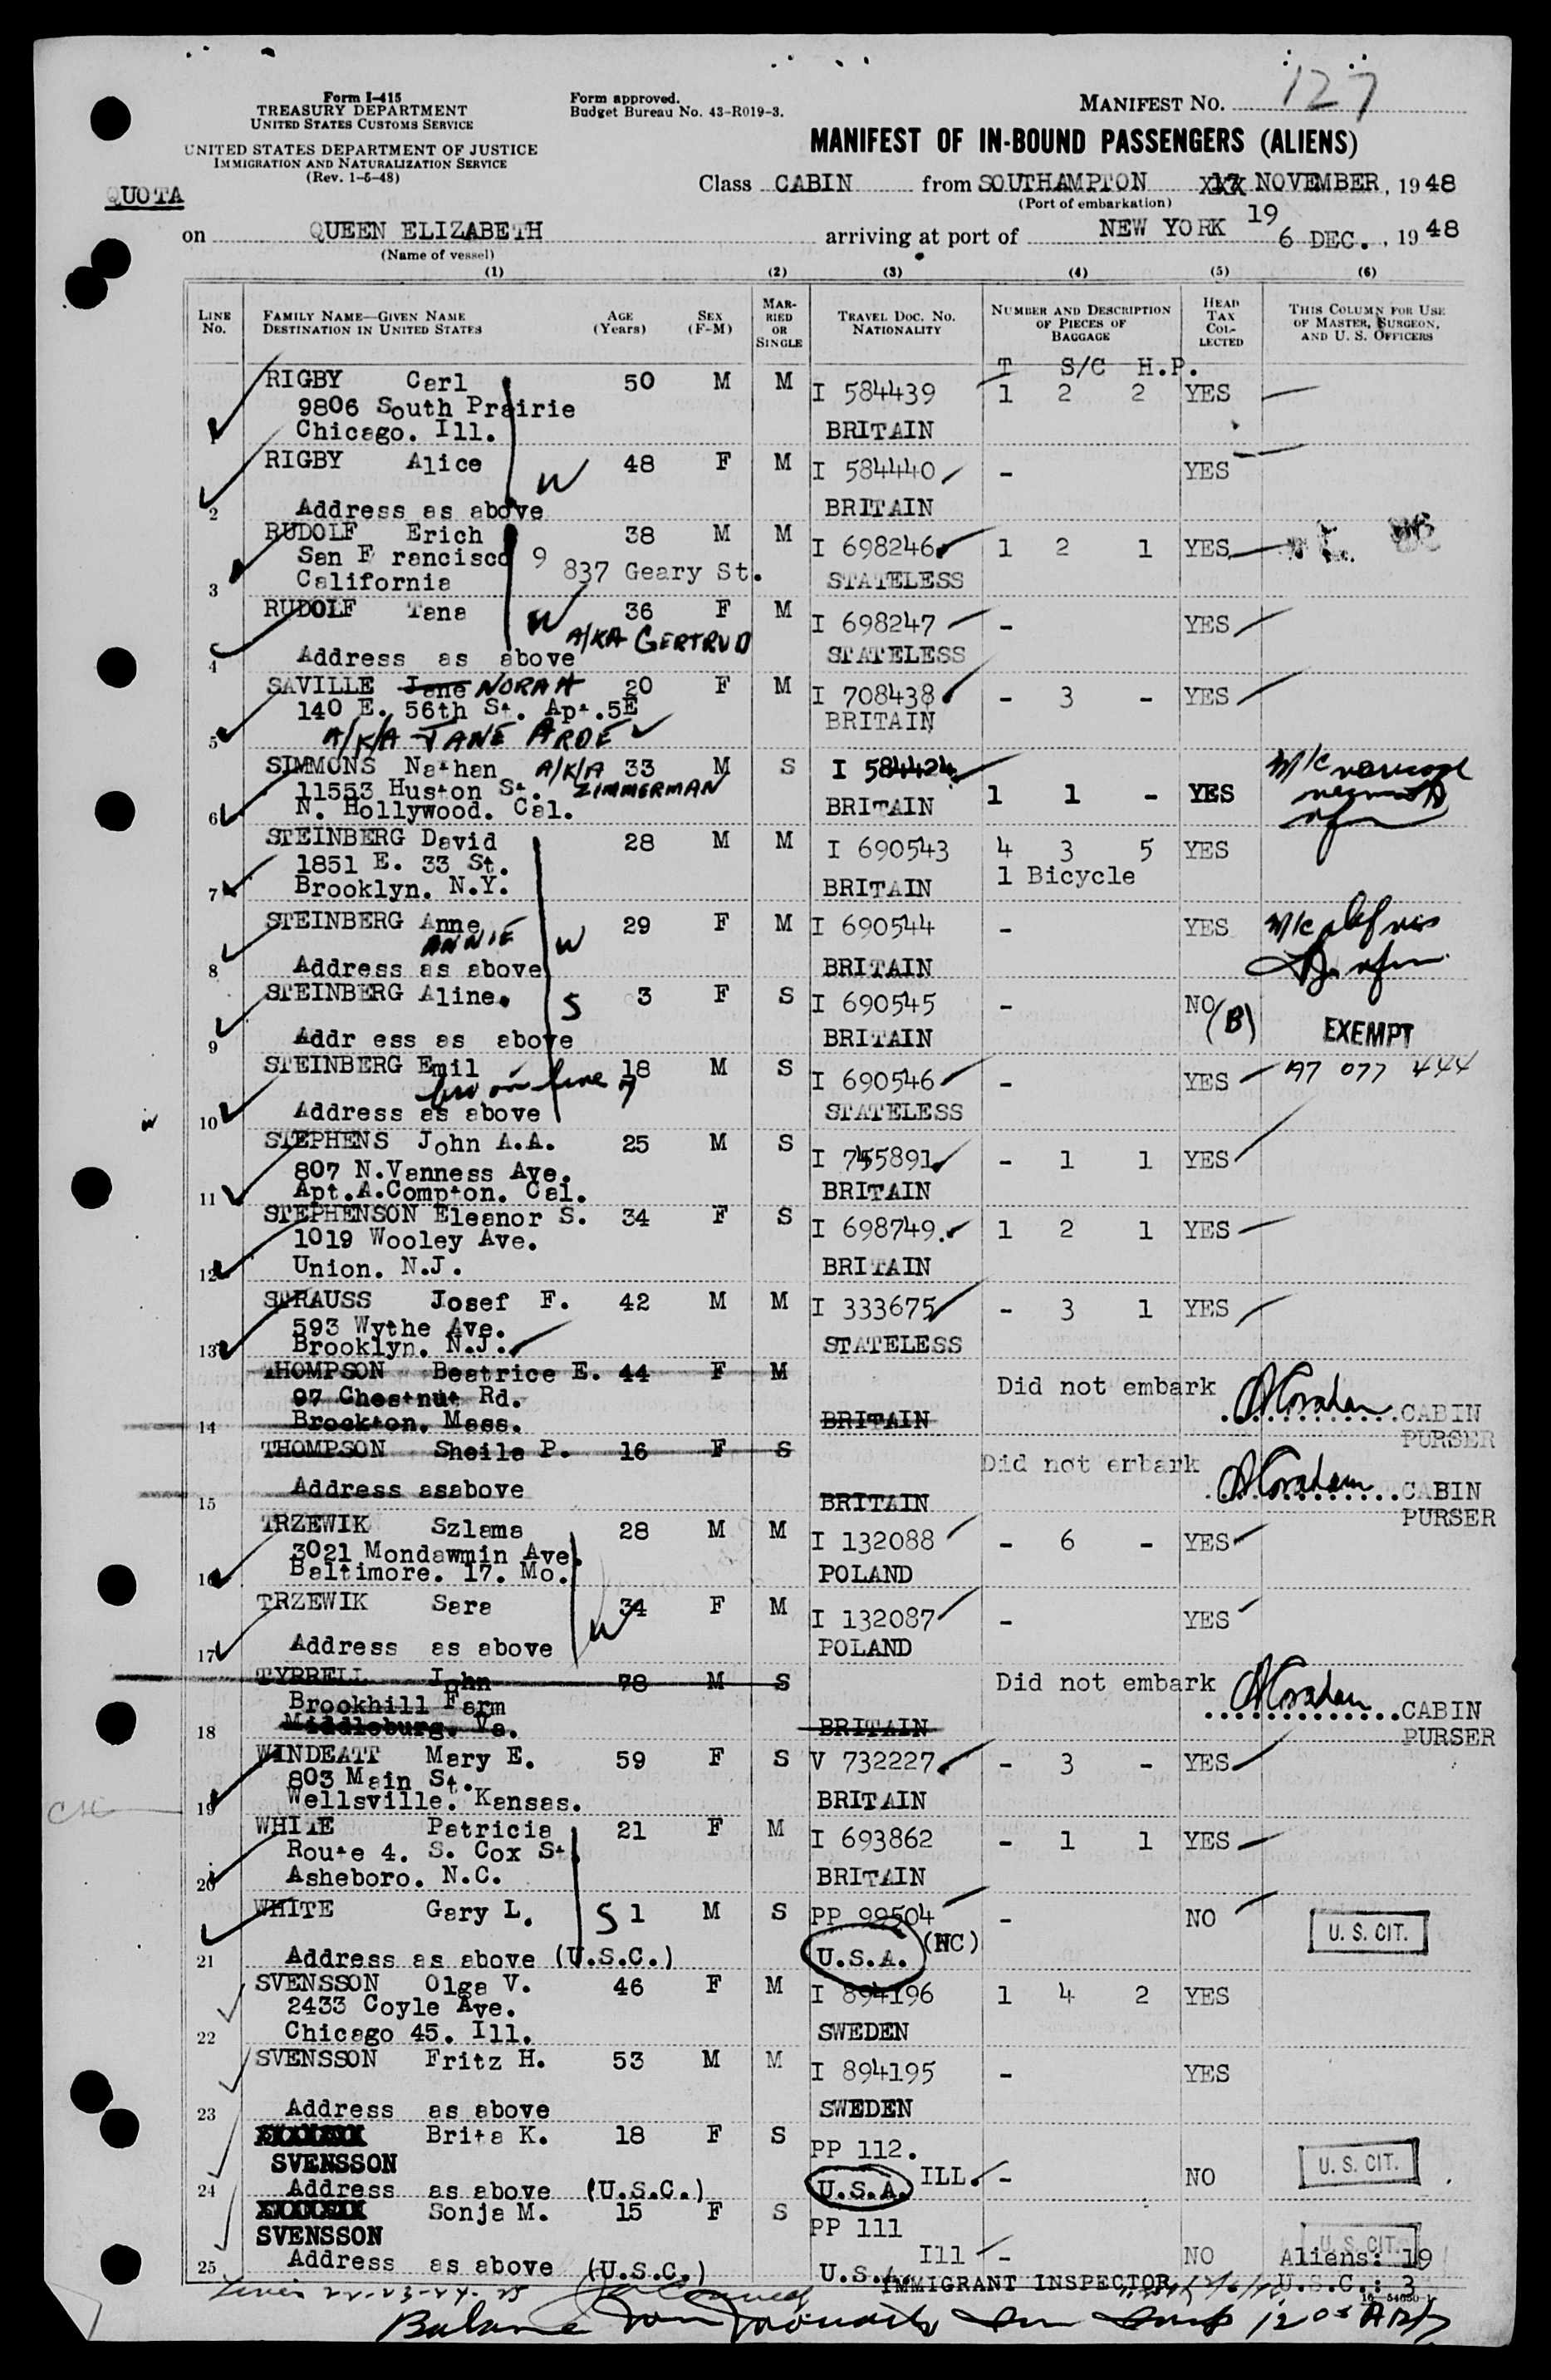 Form I-415
TREASURY DEPARTMENT
UNITED STATES CUSTOMS SERVICE
UNITED STATES DEPARTMENT OF JUSTICE
IMMIGRATION AND NATURALIZATION SERVICE
(Rev. 1-6-48)
Form approved.
Budget Bureau No. 43-R019-3.
MANIFEST NO. 127
MANIFEST OF IN-BOUND PASSENGERS (ALIENS)
QUOTA
Class CABIN from SOUTHAMPTON XXX NOVEMBER, 1948
(Port of embarkation)
19
on QUEEN ELIZABETH arriving at port of NEW YORK 6 DEC., 1948
(Name of vessel)
(1) (2) (3) (4) (5) (6)
LINE No. FAMILY NAME—GIVEN NAME DESTINATION IN UNITED STATES AGE (Years) SEX (F-M) MARRIED OR SINGLE TRAVEL DOC. NO. NATIONALITY NUMBER AND DESCRIPTION OF PIECES OF BAGGAGE HEAD TAX COLLECTED THIS COLUMN FOR USE OF MASTER, SURGEON, AND U. S. OFFICERS
T S/C H.P.
RIGBY Carl 50 M M I 584439 1 2 2 YES
9806 South Prairie
1 Chicago. Ill. BRITAIN
RIGBY Alice W 48 F M I 584440 - YES
2 Address as above BRITAIN
RUDOLF Erich 38 M M I 698246 1 2 1 YES
San F rancisco 9 837 Geary St.
3 California STATELESS
RUDOLF Tana W 36 F M I 698247 - YES
A/KA GERTRUD
4 Address as above STATELESS
SAVILLE Jane NORAH 20 F M I 708438 - 3 - YES
140 E. 56th St. Apt.5E BRITAIN
5 A/K/A JANE ARDE
SIMMONS Nathan A/K/A 33 M S I 584424
11553 Huston St. ZIMMERMAN 1 1 - YES
6 N. Hollywood. Cal. BRITAIN
STEINBERG David 28 M M I 690543 4 3 5 YES
1851 E. 33 St. 1 Bicycle
7 Brooklyn. N.Y. BRITAIN
STEINBERG Anne 29 F M I 690544 - YES
ANNIE W
8 Address as above BRITAIN
STEINBERG Aline. S 3 F S I 690545 - NO (B) EXEMPT
9 Addr ess as above BRITAIN
STEINBERG Emil 18 M S I 690546 - YES A7 077 444
bro on line 7
10 Address as above STATELESS
STEPHENS John A.A. 25 M S I 745891 - 1 1 YES
807 N.Vanness Ave.
11 Apt.A.Compton. Cal. BRITAIN
STEPHENSON Eleanor S. 34 F S I 698749. 1 2 1 YES
1019 Wooley Ave.
12 Union. N.J. BRITAIN
STRAUSS Josef F. 42 M M I 333675 - 3 1 YES
593 Wythe Ave.
13 Brooklyn. N.J. STATELESS
THOMPSON Beatrice E. 44 F M Did not embark
97 Chestnut Rd. CABIN
14 Brockton. Mass. BRITAIN PURSER
THOMPSON Sheila P. 16 F S Did not embark
Address asabove CABIN
15 BRITAIN PURSER
TRZEWIK Szlama 28 M M I 132088 - 6 - YES
3021 Mondawmin Ave.
16 Baltimore. 17. Mo. POLAND
TRZEWIK Sara W 34 F M I 132087 - YES
17 Address as above POLAND
TYRRELL John 78 M S Did not embark
Brookhill Farm CABIN
18 Middleburg. Va. BRITAIN PURSER
WINDEATT Mary E. 59 F S V 732227 - 3 - YES
803 Main St.
19 Wellsville. Kansas. BRITAIN
WHITE Patricia 21 F M I 693862 - 1 1 YES
Route 4. S. Cox St.
20 Asheboro. N.C. BRITAIN
WHITE Gary L. S 1 M S PP 99504 - NO U. S. CIT.
21 Address as above (U.S.C.) U.S.A. (NC)
SVENSSON Olga V. 46 F M I 894196 1 4 2 YES
2433 Coyle Ave.
22 Chicago 45. Ill. SWEDEN
SVENSSON Fritz H. 53 M M I 894195 - YES
23 Address as above SWEDEN
Brita K. 18 F S PP 112. U. S. CIT.
SVENSSON ILL. - NO
24 Address as above (U.S.C.) U.S.A.
Sonja M. 15 F S PP 111 U. S. CIT.
SVENSSON Ill - NO Aliens: 19
25 Address as above (U.S.C.) U.S.A.
IMMIGRANT INSPECTOR U.S.C.: 3
Lines 22-23-24-25
16—54650-1
Balance